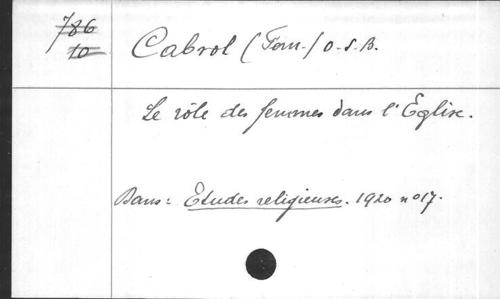 786
10
Cabrol (Fern.) O.S.B.
Le rôle des femmes dans l'Église.
Dans: Etudes religieuses. 1920 no 17.